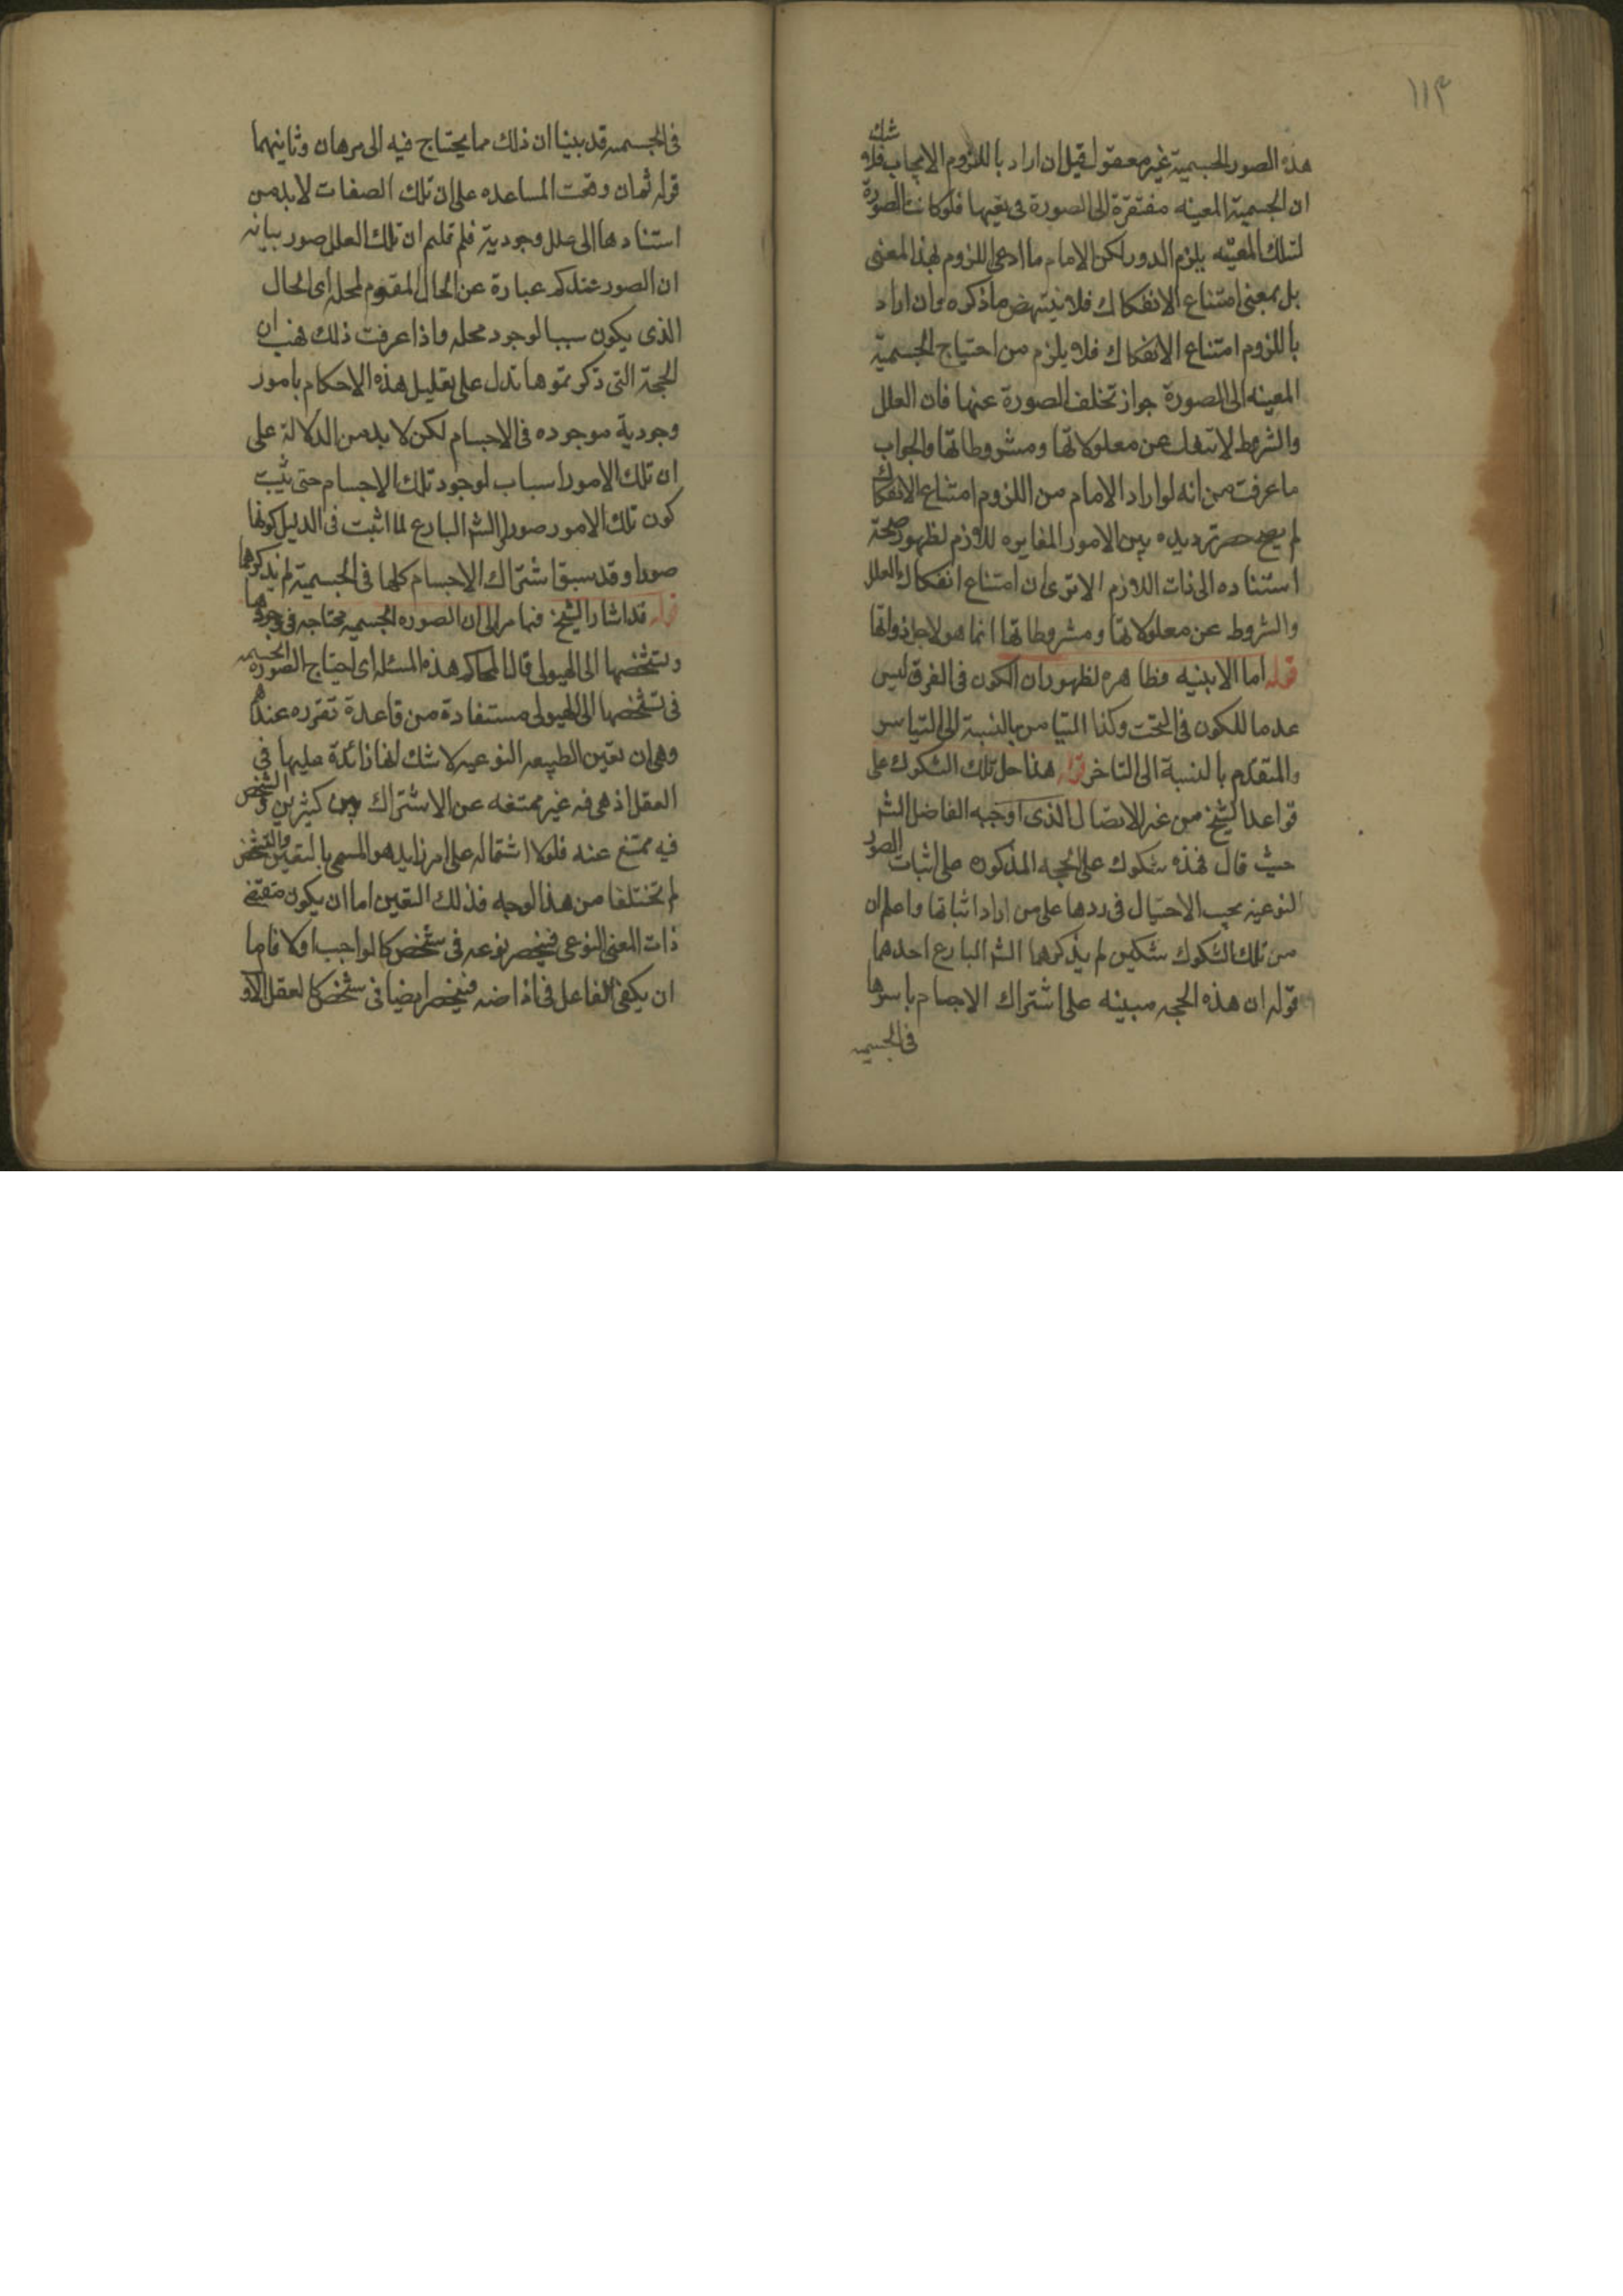 ١١٣
هذه الصور الجسمية غير معقول قيل ان اراد باللزوم الايجاب فلا شك
ان الجسمية المعينه مفتقرة الى الصورة فى تعينها فلو كانت الصورة
لتلك المعينه يلزم الدور لكن الامام ما ادعى اللزوم بهذا المعنى
بل بمعنى امتناع الانفكاك فلا ينتهض ما ذكره وان اراد
باللزوم امتناع الانفكاك فلا يلزم من احتياج الجسمية
المعينه الى الصورة جواز تخلف الصورة عنها فان العلل
والشروط لا تنفك عن معلولاتها ومشروطاتها والجواب
ما عرفت من انه لو اراد الامام من اللزوم امتناع الانفكاك
لم يصح حصر ترديده بين الامور المغايره للازم لظهور صحة
استناده الى ذات اللازم الا ترى ان امتناع انفكاك العلل
والشروط عن معلولاتها ومشروطاتها انما هو لاجل ذواتها
قوله اما الابنيه فظاهره لظهور ان الكون فى الفوق ليس
عدما للكون فى التحت وكذا التيامن بالنسبة الى التياسر
والمتقدم بالنسبة الى التاخر قوله هذا حل تلك الشكوك على
قواعد الشيخ من غير الانضال الذى اوجبه الفاضل الشم
حيث قال فهذه شكوك على الحجه المذكوره على اثبات الصور
النوعيه يجب الاحتيال فى ردها على من اراد اثباتها واعلم ان
من تلك الشكوك شكين لم يذكرهما الشم البارع احدهما
قوله ان هذه الحجه مبينه على اشتراك الاجسام باسرها
فى الجسميه
فى الجسميه قد بينا ان ذلك مما يحتاج فيه الى برهان وثانيهما
قوله ثمان وقت المساعده على ان تلك الصفات لا بد من
استنادها الى علل وجودية فلم قلتم ان تلك العلل صور بيانه
ان الصور عندكم عبارة عن الحال المقوم لمحله اى الحال
الذى يكون سببا لوجود محله واذا عرفت ذلك فهب ان
الحجة التى ذكرتموها تدل على تعليل هذه الاحكام بامور
وجودية موجوده فى الاجسام لكن لا بد من الدلالة على
ان تلك الامور اسباب لوجود تلك الاجسام حتى يثبت
كون تلك الامور صورا والشم البارع لما اثبت فى الدليل كونها
صورا وقد سبق اشتراك الاجسام كلها فى الجسمية لم يذكرهما
قوله قد اشار الشيخ فيما مر الى ان الصوره الجسميه محتاجه فى وجودها
وتشخصها الى الهيولى قال المحاكم هذه المسئله اى احتياج الصورة الجسميه
فى تشخصها الى الهيولى مستفادة من قاعدة تقرره عندهم
وهى ان تعين الطبيعه النوعيه لا شك انها زائدة عليها فى
العقل اذ هى فيه غير ممتنعه عن الاشتراك بين كثيرين والشخص
فيه ممتنع عنه فلولا اشتماله على امر زايد هو المسمى بالتعين والتشخص
لم تختلفا من هذا الوجه فذلك التعين اما ان يكون مقتضى
ذات المعنى النوعى فينحصر نوعه فى شخص كالواجب اولا فاما
ان يكفى الفاعل فى افاضته فينحصر ايضا فى شخص كالعقل الاول